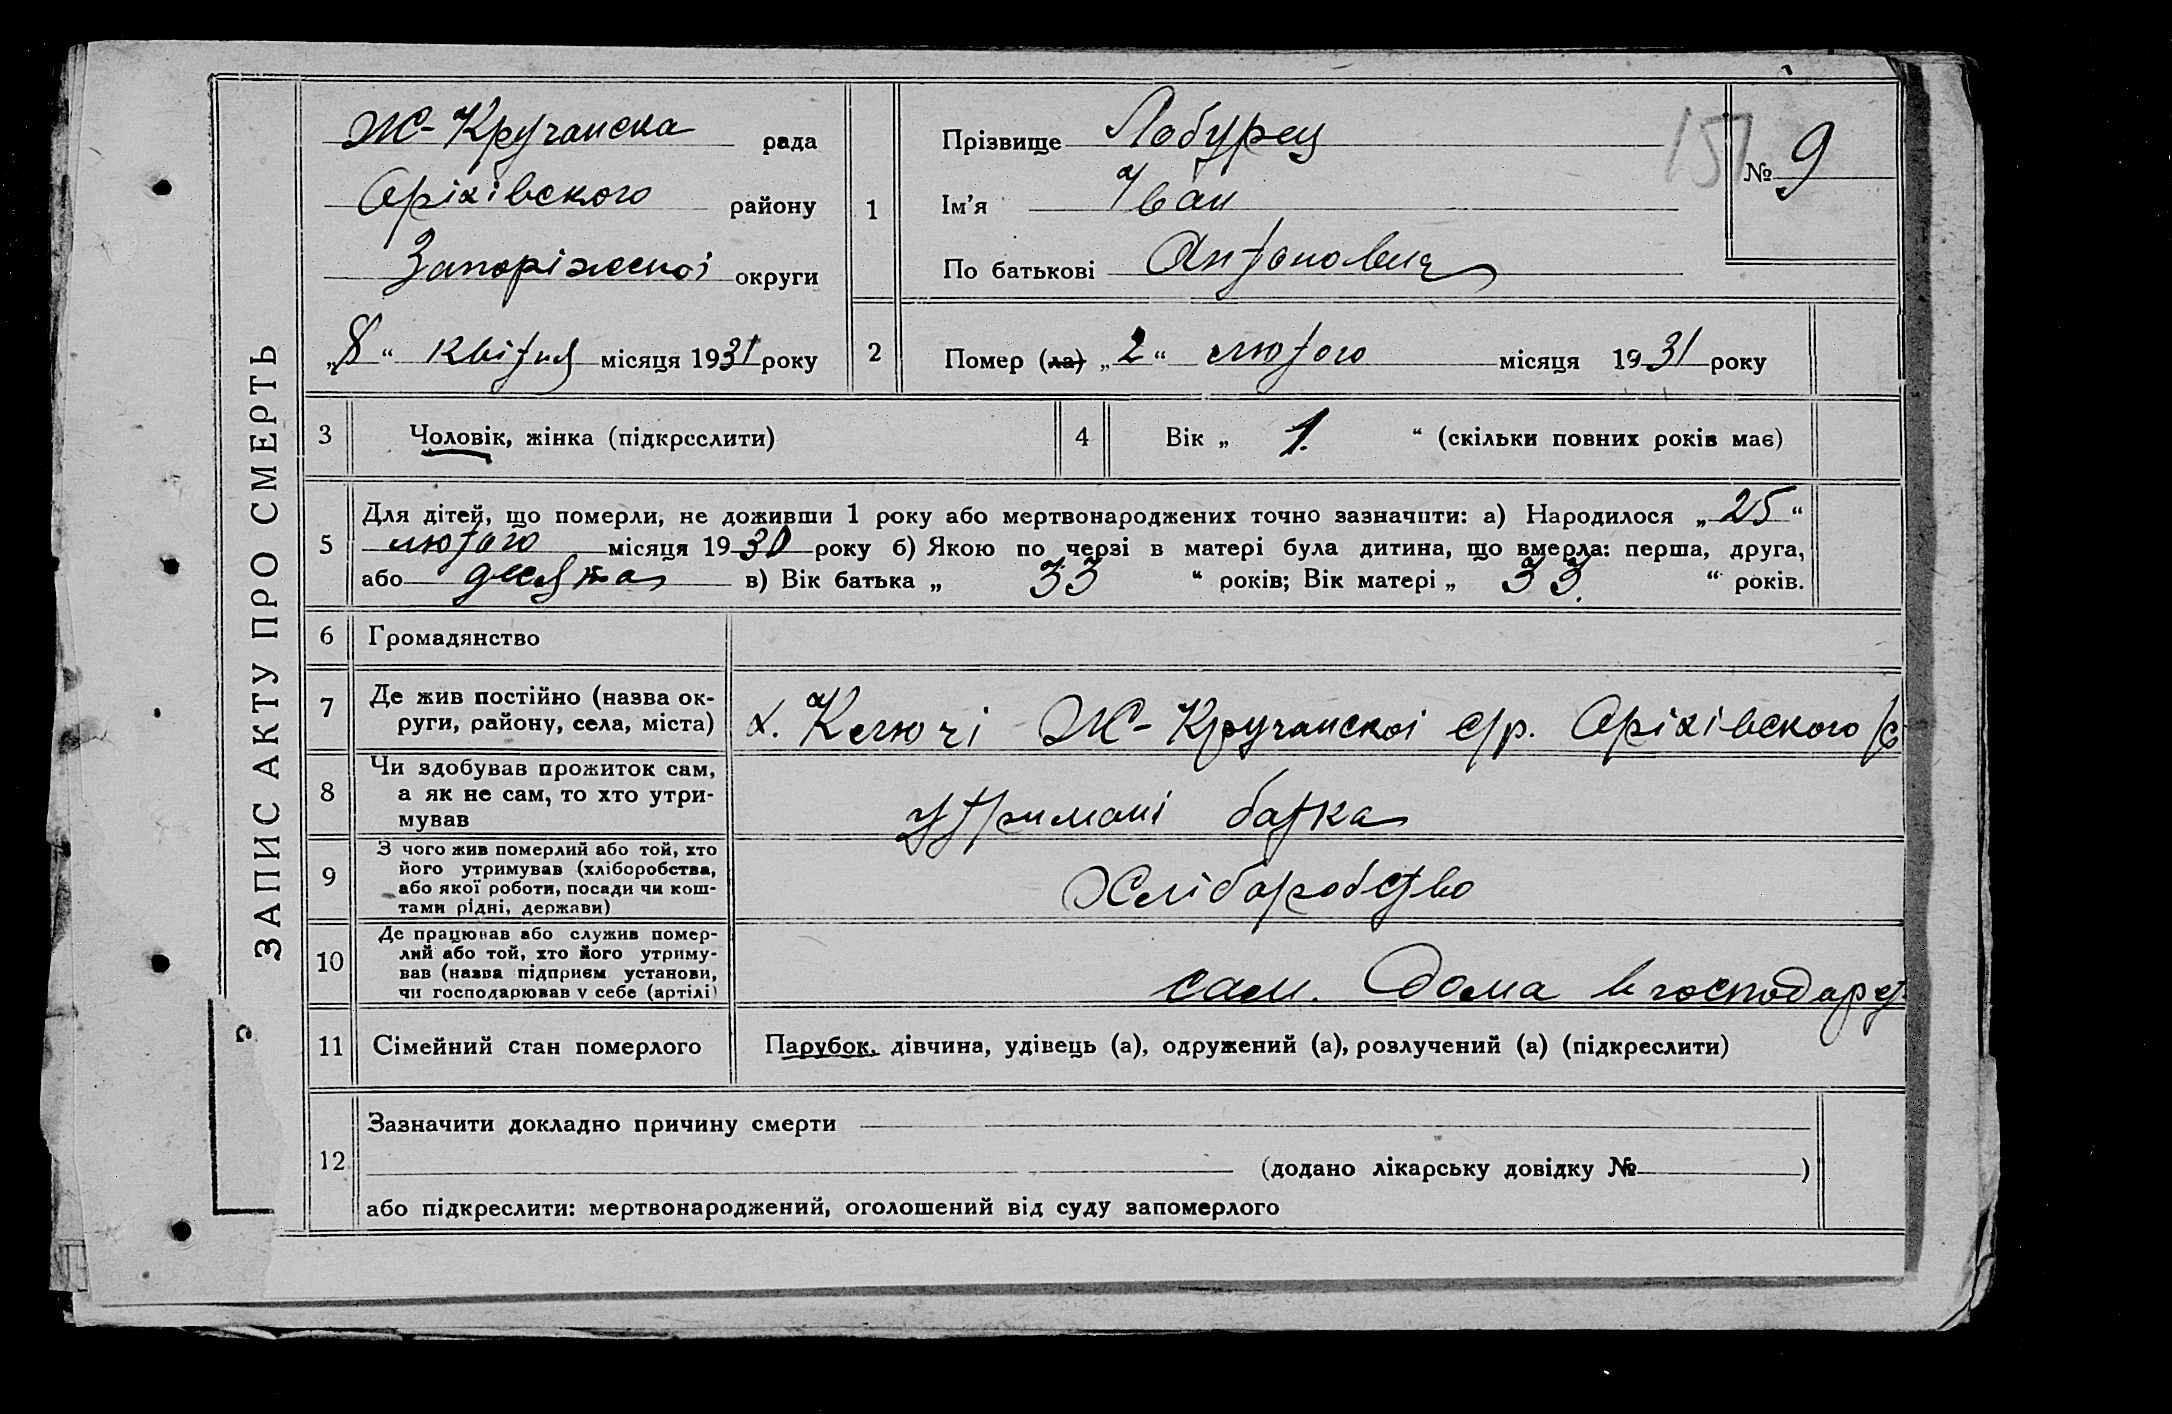 ЗАПИС АКТУ ПРО СМЕРТЬ
Ж-Кручанска рада
Оріхівского району
Запоріжської округи
„8“ квітня місяця 1931 року
1
Прізвище Лобурец
Ім'я Іван
По батькові Антонович
151
№ 9
2
Помер (ла) „2“ лютого місяця 1931 року
3 Чоловік, жінка (підкреслити)
4 Вік „ 1. “ (скільки повних років має)
5
Для дітей, що померли, не доживши 1 року або мертвонароджених точно зазначити: а) Народилося „25“
лютого місяця 1930 року б) Якою по черзі в матері була дитина, що вмерла: перша, друга,
або десята в) Вік батька „ 33 “ років; Вік матері „ 33. “ років.
6 Громадянство
7
Де жив постійно (назва ок-
руги, району, села, міста)
х. Ключі Ж-Кручанскоі с/р. Оріхівского
8
Чи здобував прожиток сам,
а як не сам, то хто утри-
мував
утримані батка
9
З чого жив померлий або той, хто
його утримував (хліборобства,
або якої роботи, посади чи кош-
тами рідні, держави)
Хліборобство
10
Де працював або служив помер-
лий або той, хто його утриму-
вав (назва підприєм установи,
чи господарював у себе (артілі)
сам. Дома в господарст
11 Сімейний стан померлого
Парубок, дівчина, удівець (а), одружений (а), розлучений (а) (підкреслити)
12
Зазначити докладно причину смерти
(додано лікарську довідку № )
або підкреслити: мертвонароджений, оголошений від суду запомерлого